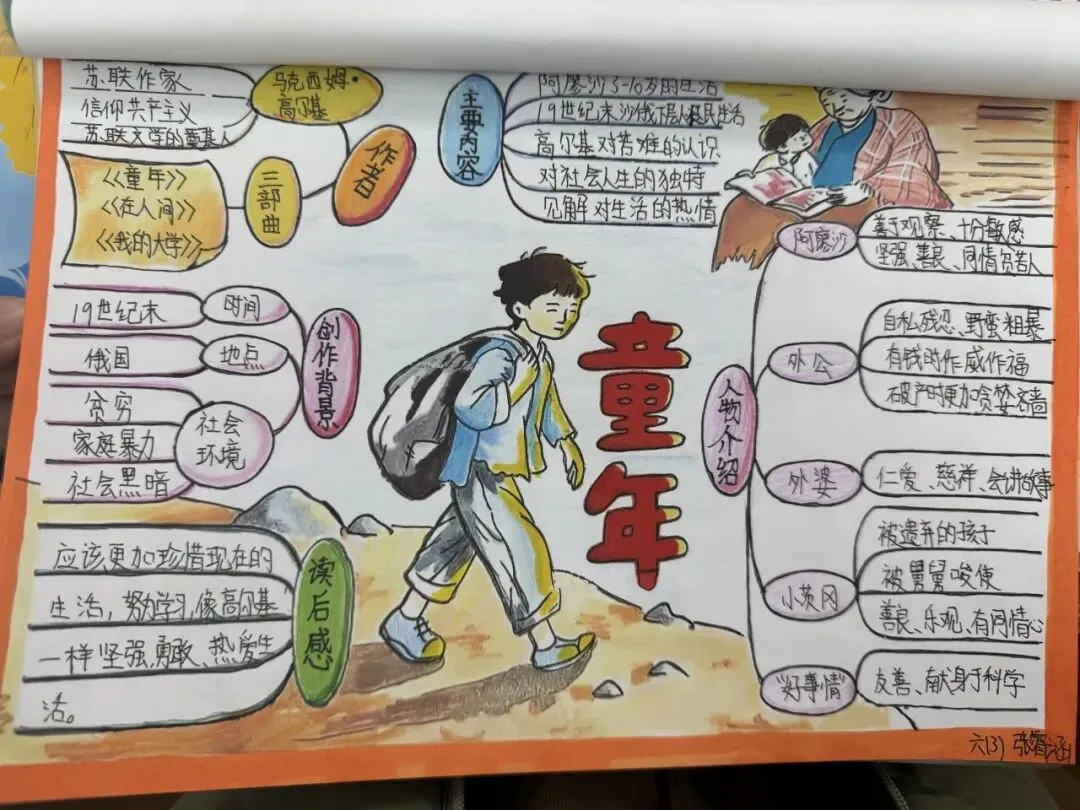 苏联作家
信仰共产主义
苏联文学的奠基人
马克西姆·
高尔基
作者
三部曲
《童年》
《在人间》
《我的大学》
主要内容
阿廖沙3-10岁的生活
19世纪末沙俄下层人民生活
高尔基对苦难的认识
对社会人生的独特
见解对生活的热情
创作背景
时间
19世纪末
地点
俄国
社会
环境
贫穷
家庭暴力
社会黑暗
童年
人物介绍
阿廖沙
善于观察、十分敏感
坚强、善良、同情贫苦人
外公
自私残忍、野蛮粗暴
有钱时作威作福
破产时更加贪婪吝啬
外婆
仁爱、慈祥、会讲故事
小茨冈
被遗弃的孩子
被舅舅唆使
善良、乐观、有同情心
"好事情"
友善、献身于科学
读后感
应该更加珍惜现在的
生活，努力学习，像高尔基
一样坚强，勇敢、热爱生
活。
六(3) 张睿涵